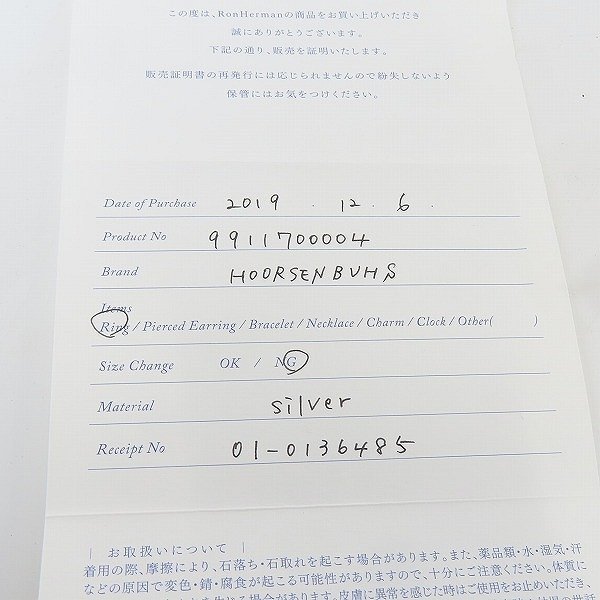 この度は、RonHermanの商品をお買い上げいただき
誠にありがとうございます。
下記の通り、販売を証明いたします。
販売証明書の再発行には応じられませんので紛失しないよう
保管にはお気をつけください。
Date of Purchase 2019 . 12 . 6 .
Product No 9911700004
Brand HOORSENBUHS
Items
Ring / Pierced Earring / Bracelet / Necklace / Charm / Clock / Other( )
Size Change OK / NG
Material silver
Receipt No 01-0136485
| お取扱いについて |
着用の際、摩擦により、石落ち・石取れを起こす場合があります。また、薬品類・水・湿気・汗
などの原因で変色・錆・腐食が起こる可能性がありますので、十分にご注意ください。体質に
場合があります。皮膚に異常を感じた時はご使用をお止めいただき、